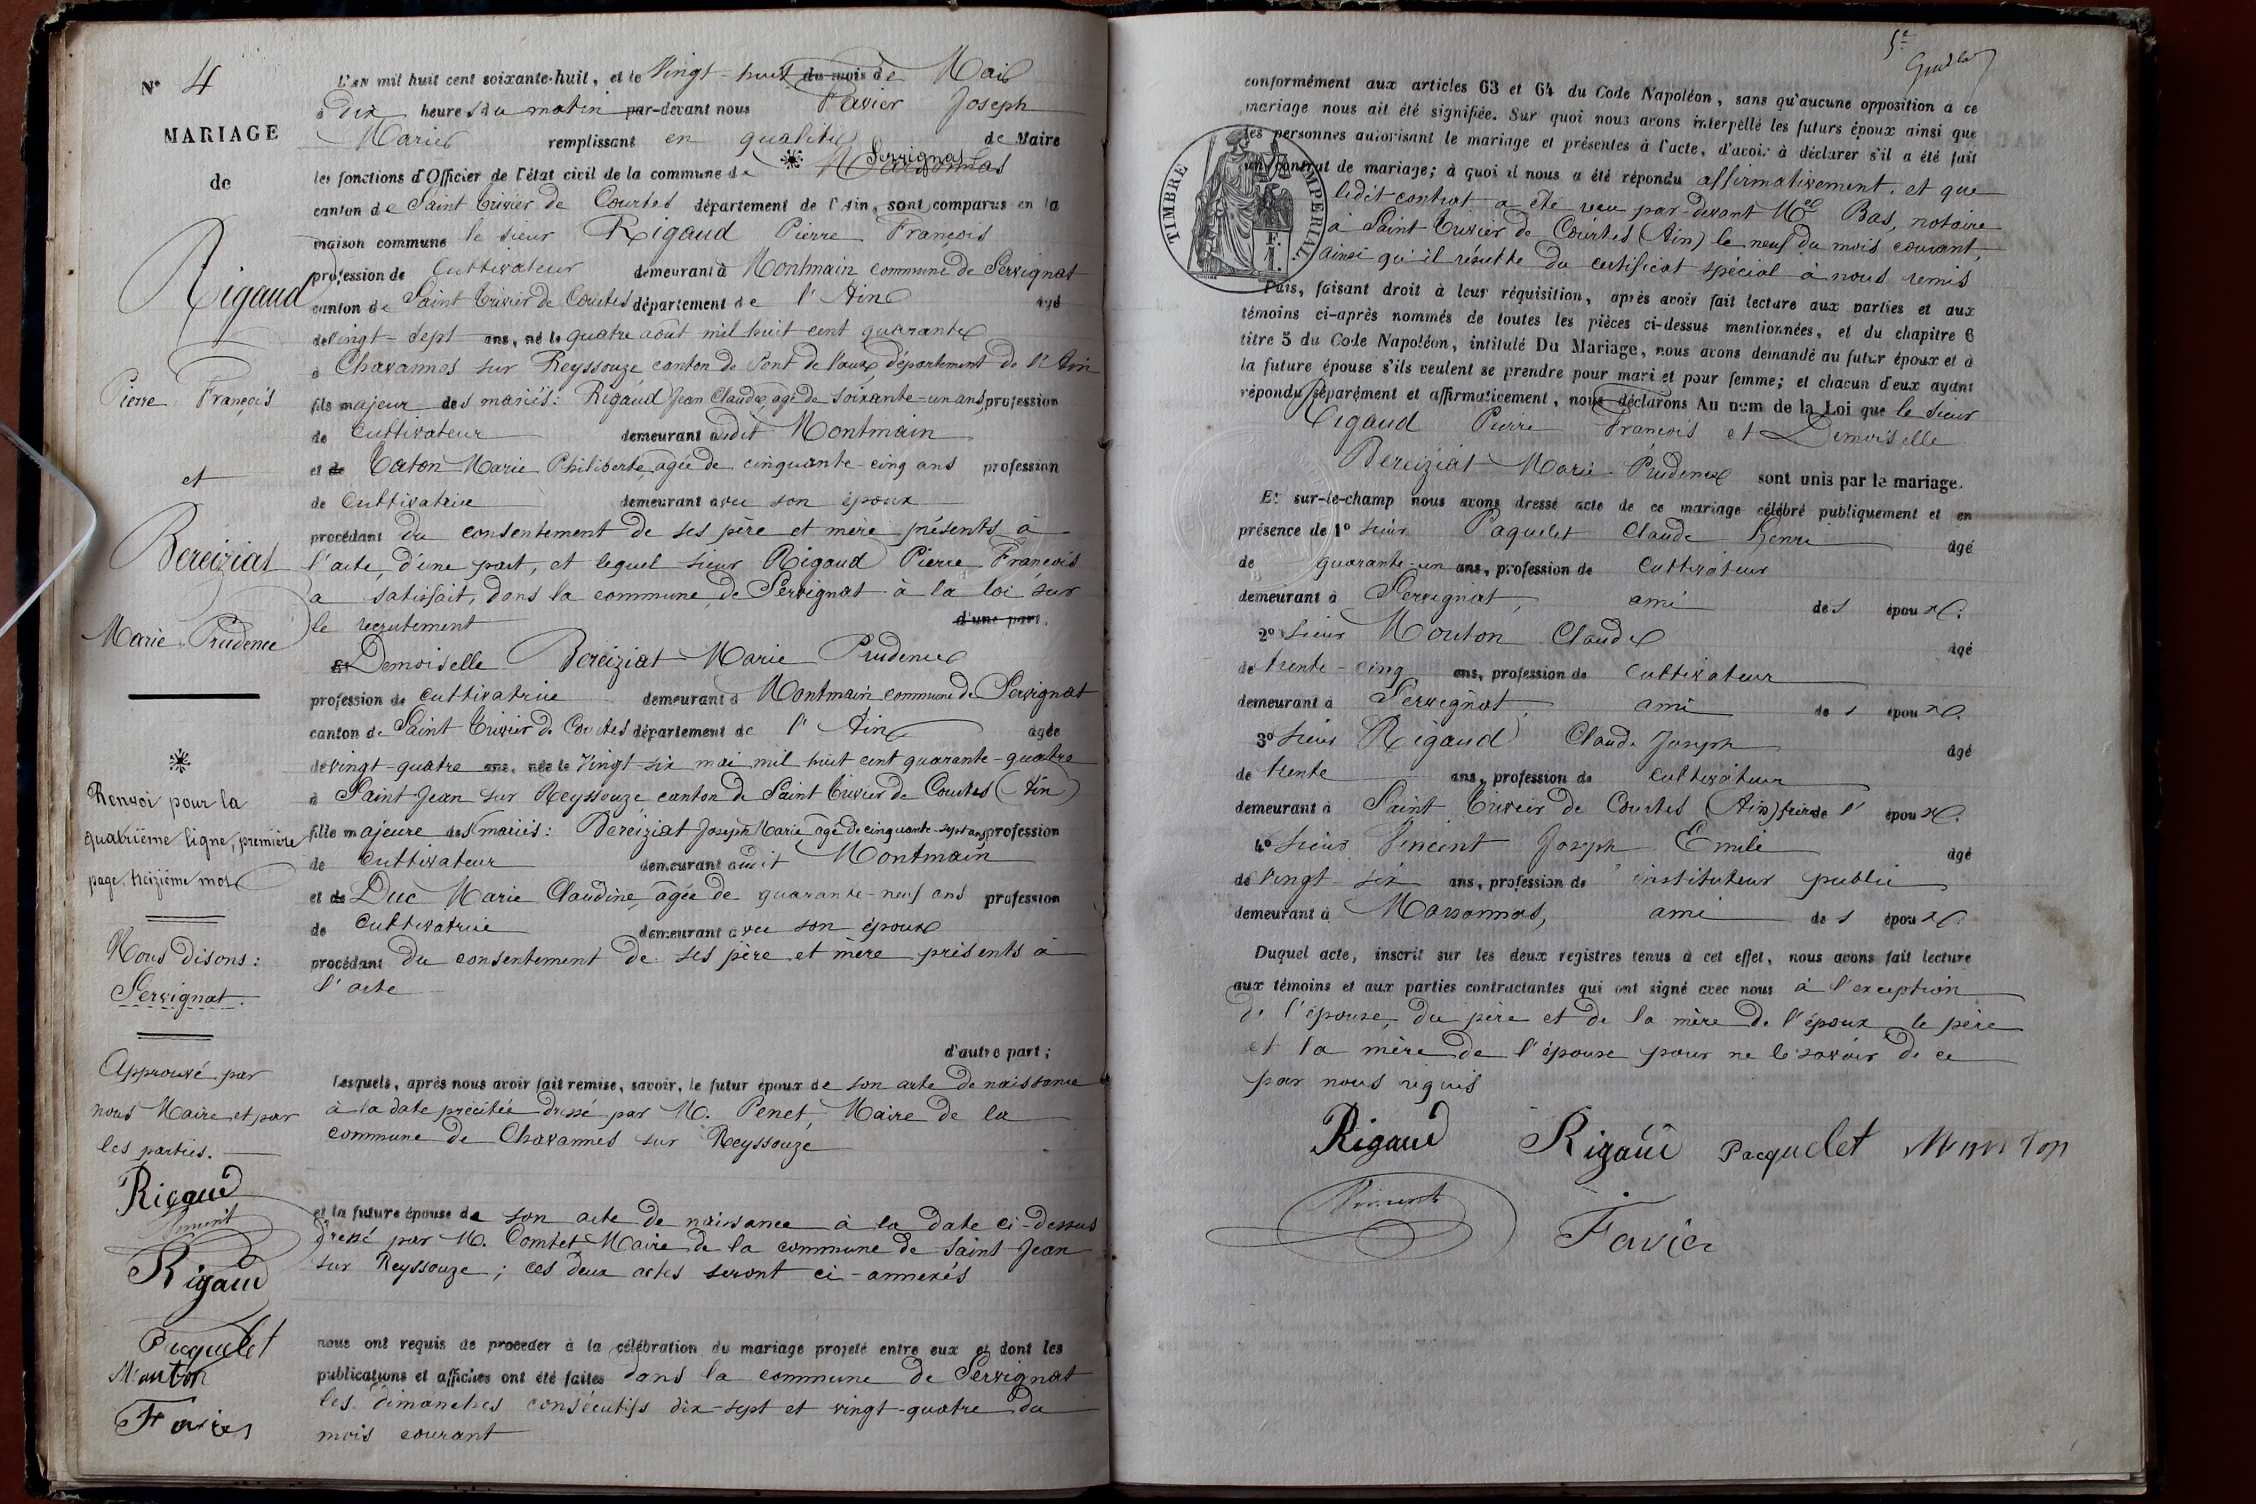 N° 4
MARIAGE
de
Rigaud
Pierre François
et
Bereiziat
Marie Prudence
Renvoi pour la
quatrième ligne, première
page, treizième mot
Nous disons :
Servignat.
Approuvé par
nous Maire et par
les parties.
Rigaud
Vincent
Rigaud
Paquelet
Mouton
Favier
L'AN mil huit cent soixante-huit, et le Vingt-huit du mois de Mai
à Dix heures du matin par-devant nous Favier Joseph
Marie remplissant en qualité de Maire
Servignat
les fonctions d'Officier de l'état civil de la commune de Marsonnas
canton de Saint Trivier de Courtes département de l'Ain, sont comparus en la
maison commune le sieur Rigaud Pierre François
profession de cultivateur demeurant à Montmain commune de Servignat
canton de Saint Trivier de Courtes département de l'Ain âgé
de Vingt-sept ans, né le quatre août mil huit cent quarante
à Chavannes sur Reyssouze canton de Pont de Vaux, département de l'Ain
fils majeur des mariés : Rigaud Jean Claude, âgé de soixante-un ans, profession
de cultivateur demeurant audit Montmain
et de Caton Marie Philiberte, âgée de cinquante-cinq ans profession
de cultivatrice demeurant avec son époux
procédant du consentement de ses père et mère présents à
l'acte, d'une part, et lequel sieur Rigaud Pierre François
a satisfait, dans la commune de Servignat à la loi sur
le recrutement d'une part.
Et Demoiselle Bereiziat Marie Prudence
profession de cultivatrice demeurant à Montmain, commune de Servignat
canton de Saint Trivier de Courtes département de l'Ain âgée
de vingt-quatre ans, née le Vingt-six mai mil huit cent quarante-quatre
à Saint Jean sur Reyssouze canton de Saint Trivier de Courtes (Ain)
fille majeure des mariés : Bereiziat Joseph Marie, âgé de cinquante-sept ans, profession
de cultivateur demeurant audit Montmain
et de Duc Marie Claudine, âgée de quarante-neuf ans profession
de cultivatrice demeurant avec son époux
procédant du consentement de ses père et mère présents à
l'acte
d'autre part ;
Lesquels, après nous avoir fait remise, savoir, le futur époux de son acte de naissance
à la date précitée dressé par M. Penet, Maire de la
commune de Chavannes sur Reyssouze
et la future épouse de son acte de naissance à la date ci-dessus
dressé par M. Comtet Maire de la commune de Saint Jean
sur Reyssouze ; ces deux actes seront ci-annexés
nous ont requis de procéder à la célébration du mariage projeté entre eux et dont les
publications et affiches ont été faites dans la commune de Servignat
les dimanches consécutifs dix-sept et vingt-quatre du
mois courant
conformément aux articles 63 et 64 du Code Napoléon, sans qu'aucune opposition à ce
mariage nous ait été signifiée. Sur quoi nous avons interpellé les futurs époux ainsi que
les personnes autorisant le mariage et présentes à l'acte, d'avoir à déclarer s'il a été fait
un contrat de mariage ; à quoi il nous a été répondu affirmativement, et que
ledit contrat a été reçu par-devant Me Bas, notaire
à Saint Trivier de Courtes (Ain) le neuf du mois courant,
ainsi qu'il résulte du certificat spécial à nous remis
TIMBRE IMPERIAL
Puis, faisant droit à leur réquisition, après avoir fait lecture aux parties et aux
témoins ci-après nommés de toutes les pièces ci-dessus mentionnées, et du chapitre 6
titre 5 du Code Napoléon, intitulé Du Mariage, nous avons demandé au futur époux et à
la future épouse s'ils veulent se prendre pour mari et pour femme ; et chacun d'eux ayant
répondu séparément et affirmativement, nous déclarons Au nom de la Loi que le sieur
Rigaud Pierre François et Demoiselle
Bereiziat Marie Prudence sont unis par le mariage.
Et sur-le-champ nous avons dressé acte de ce mariage célébré publiquement et en
présence de 1° sieur Paquelet Claude Henri âgé
de quarante-un ans, profession de cultivateur
demeurant à Servignat, ami des époux.
2° sieur Mouton Claude âgé
de trente-cinq ans, profession de cultivateur
demeurant à Servignat, ami des époux.
3° sieur Rigaud Claude Joseph âgé
de trente ans, profession de cultivateur
demeurant à Saint Trivier de Courtes (Ain) frère de l'époux.
4° sieur Vincent Joseph Emile âgé
de Vingt-six ans, profession de instituteur public
demeurant à Marsonnas, ami des époux.
Duquel acte, inscrit sur les deux registres tenus à cet effet, nous avons fait lecture
aux témoins et aux parties contractantes qui ont signé avec nous à l'exception
de l'épouse, du père et de la mère de l'époux, le père
et la mère de l'épouse pour ne le savoir de ce
par nous requis
Rigaud Rigaud Pacquelet Mouton
Vincent Favier